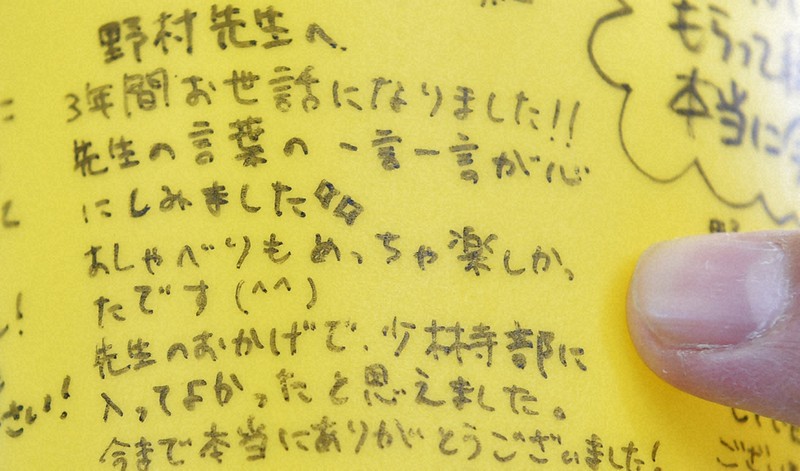 野村先生へ
3年間お世話になりました!!
先生の言葉の一言一言が心
にしみました
おしゃべりもめっちゃ楽しかっ
たです(^^)
先生のおかげで、少林寺部に
入ってよかったと思えました。
今まで本当にありがとうございました!
もらって
本当に
さい!